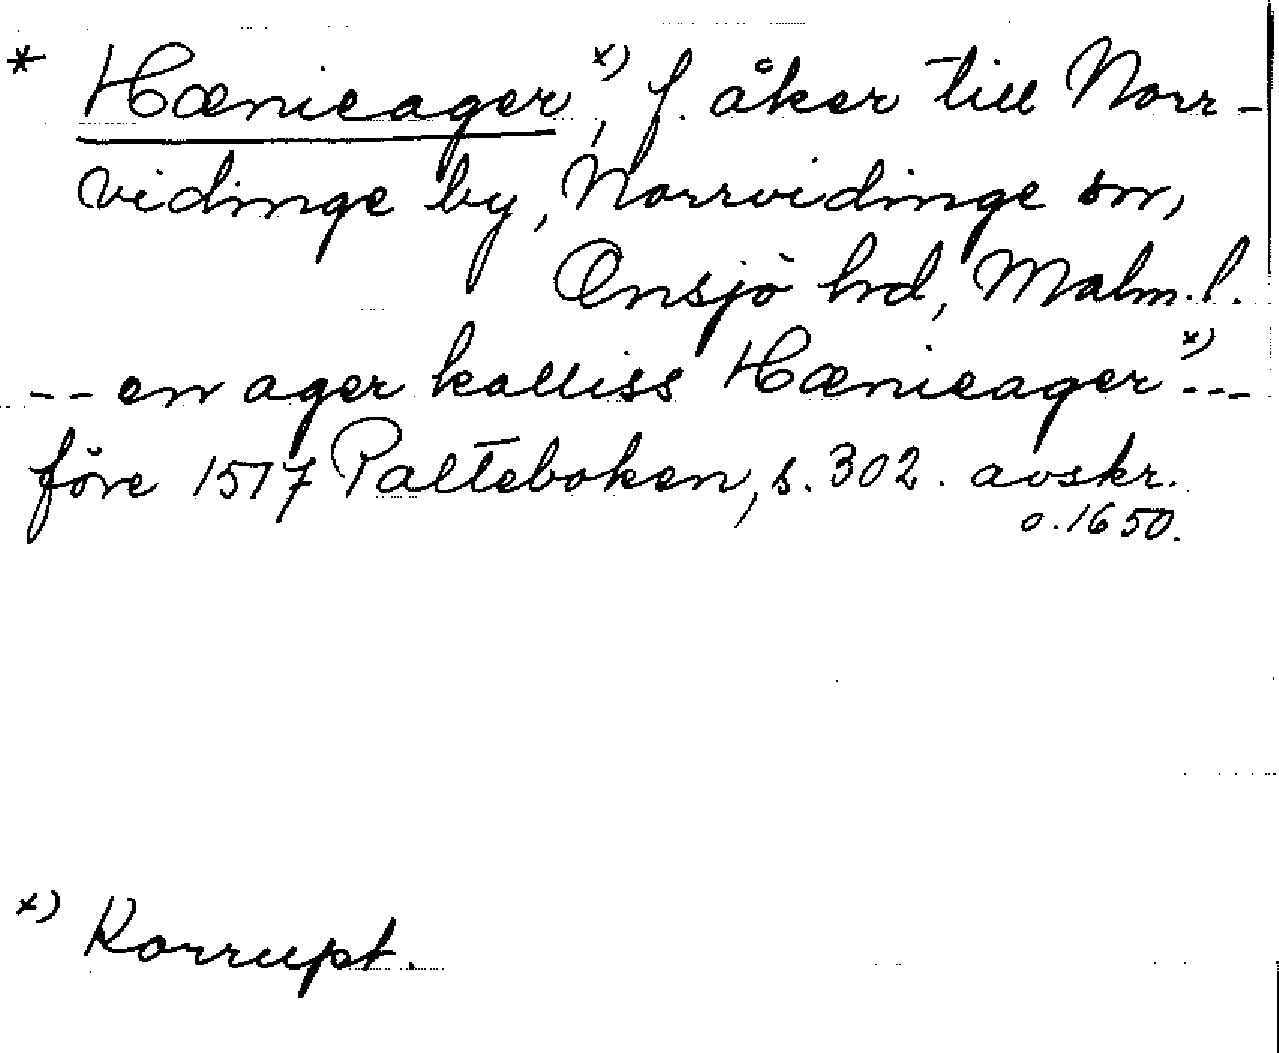 * Hænieager x), f. åker till Norr-
vidinge by, Norrvidinge sn,
Onsjö hd, Malm. l.
-- en ager kalliss Hænieager x) --
före 1517 Palteboken, s. 302. avskr.
o. 1650.
x) Korrupt.